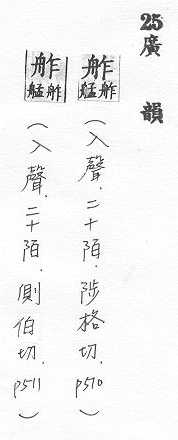 25廣韻
舴舴艋(入聲.二十陌.陟格切.p510)
舴舴艋(入聲.二十陌.側伯切.p511)